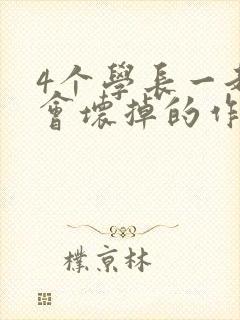 4个學長一
會壞掉的作
樸京林